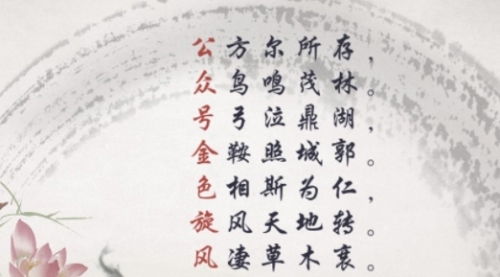 公方尔所存，
众鸟鸣茂林。
号弓泣鼎湖，
金鞍照城郭。
色相斯为仁，
旋风天地转，
风凄草木衰。